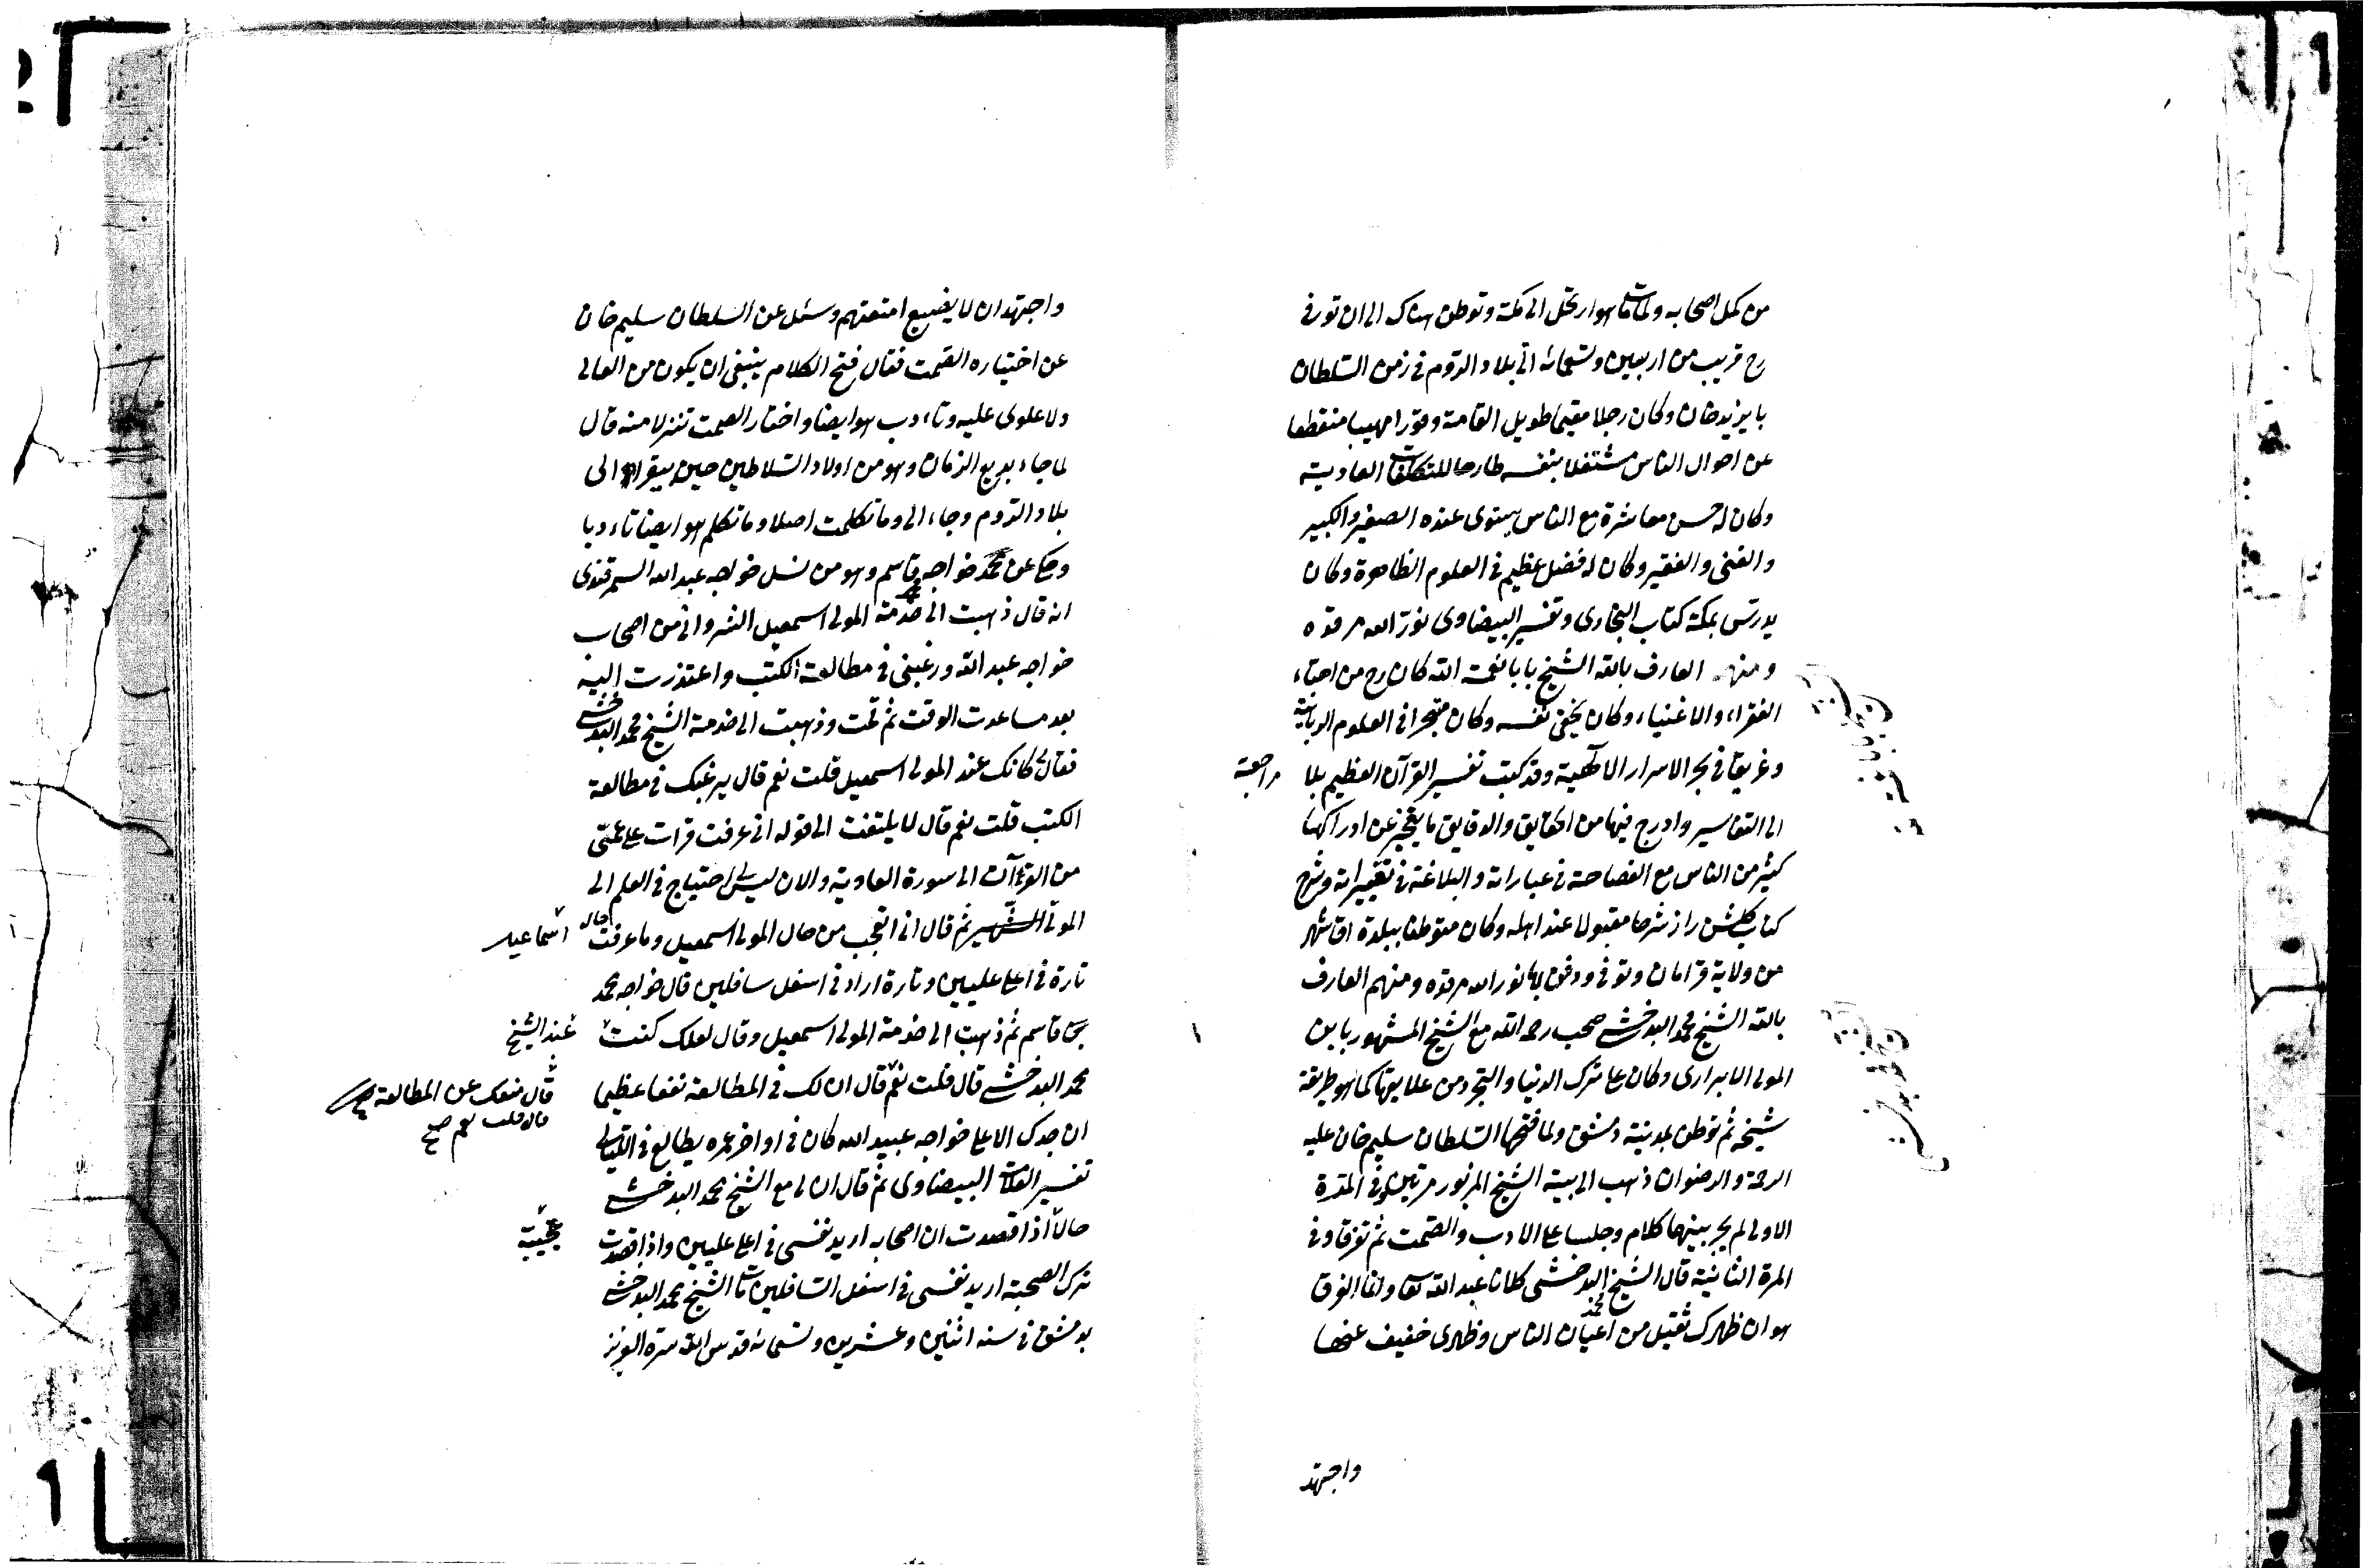 من كمل اصحابه ولما مات هو ارتحل الى مكة وتوطن هناك الى ان توفى
رح قريب من اربعين وتسعمائه اتى بلاد الروم في زمن السلطان
بايزيد خان وكان رجلا مقيما طويل القامة وقورا مهيبا منقطعا
عن احوال الناس مشتغلا بنفسه طارحا للتكلفات العادية
وكان له حسن معاشرة مع الناس يستوى عنده الصغير والكبير
والغنى والفقير وكان له فضل عظيم في العلوم الظاهرة وكان
يدرس بمكة كتاب البخارى وتفسير البيضاوى نور الله مرقده
ومنهم العارف بالله الشيخ بابا نعمت الله كان رح من احباء
الفقراء والاغنياء وكان يخفى نفسه وكان متبحرا في العلوم الربانية
وغريقا في بحر الاسرار الالهية وقد كتب تفسير القرآن العظيم بلا مراجعة
الى التفاسير وادرج فيها من الحقايق والدقايق ما يعجز عن ادراكها
كثير من الناس مع الفصاحة في عباراته والبلاغة في تعبيراته وشرح
كتاب كلشن راز شرحا مقبولا عند اهله وكان متوطنا ببلدة اق شهر
من ولاية قرامان وتوفى ودفن بها نور الله مرقده ومنهم العارف
بالله الشيخ محمد البدخشى صحب رحمه الله مع الشيخ المشهور بابن
المولى الابرارى وكان على ترك الدنيا والتجرد من علايقها كما هو طريقة
شيخه ثم توطن بمدينة دمشق ولما فتحها السلطان سليم خان عليه
الرحمة والرضوان ذهب الى بيته الشيخ المزبور مرتين وفى المرة
الاولى لم يجر بينهما كلام وجلسا على الادب والصمت ثم تفرقا وفى
المرة الثانية قال الشيخ محمد البدخشى كلانا عبد الله تعا وانما الفرق
هو ان ظهرك ثقيل من اعيان الناس وظهرى خفيف عنها
واجتهد
واجتهد ان لا يضيع امتعتهم وسئل عن السلطان سليم خان
عن اختياره الصمت فقال فتح الكلام ينبغى ان يكون من العالى
ولا علو لى عليه وتاءدب هو ايضا واختار الصمت تنزلا منه قال
لما جاء بديع الزمان وهو من اولاد السلاطين حسين بيقرا الى
بلاد الروم وجاء الى وما تكلمت اصلا وما تكلم هو ايضا تاءدبا
وحكى عن محمد خواجه قاسم وهو من نسل خواجه عبد الله السمرقندى
انه قال ذهبت الى خدمة المولى اسمعيل الشروانى من اصحاب
خواجه عبد الله ورغبنى في مطالعة الكتب واعتذرت اليه
بعدم مساعدت الوقت ثم قمت وذهبت الى خدمة الشيخ محمد البدخشى
فقال لى كانك عند المولى اسمعيل قلت نعم قال يرغبك في مطالعة
الكتب قلت نعم قال لا يلتفت الى قوله انى عرفت قرات على عمى
من القرآن الى سورة العادية والان ليس لى احتياج في العلم الى
المولى الشهير ثم قال انى اتعجب من حال المولى اسمعيل وما عرفت حاله
اسماعيل
تارة في اعلى عليين وتارة اراه في اسفل سافلين قال خواجه محمد
قاسم ثم ذهبت الى خدمة المولى اسمعيل وقال لعلك كنت عند الشيخ
محمد البدخشى قال قلت نعم قال ان لك في المطالعة نفعا عظيما
قال منعك عن المطالعة
قال قلت نعم صح
ان جدك الاعلى خواجه عبيد الله كان في اواخر عمره يطالع في الليالى
تفسير العلامة البيضاوى ثم قال ان لى مع الشيخ محمد البدخشى
حالا اذا قصدت ان اصحابه اريد نفسى في اعلى عليين واذا قصدت
عجيبة
ترك الصحبة اريد نفسى في اسفل السافلين مات الشيخ محمد البدخشى
بدمشق في سنه اثنين وعشرين وتسمائه قدس الله سره العزيز